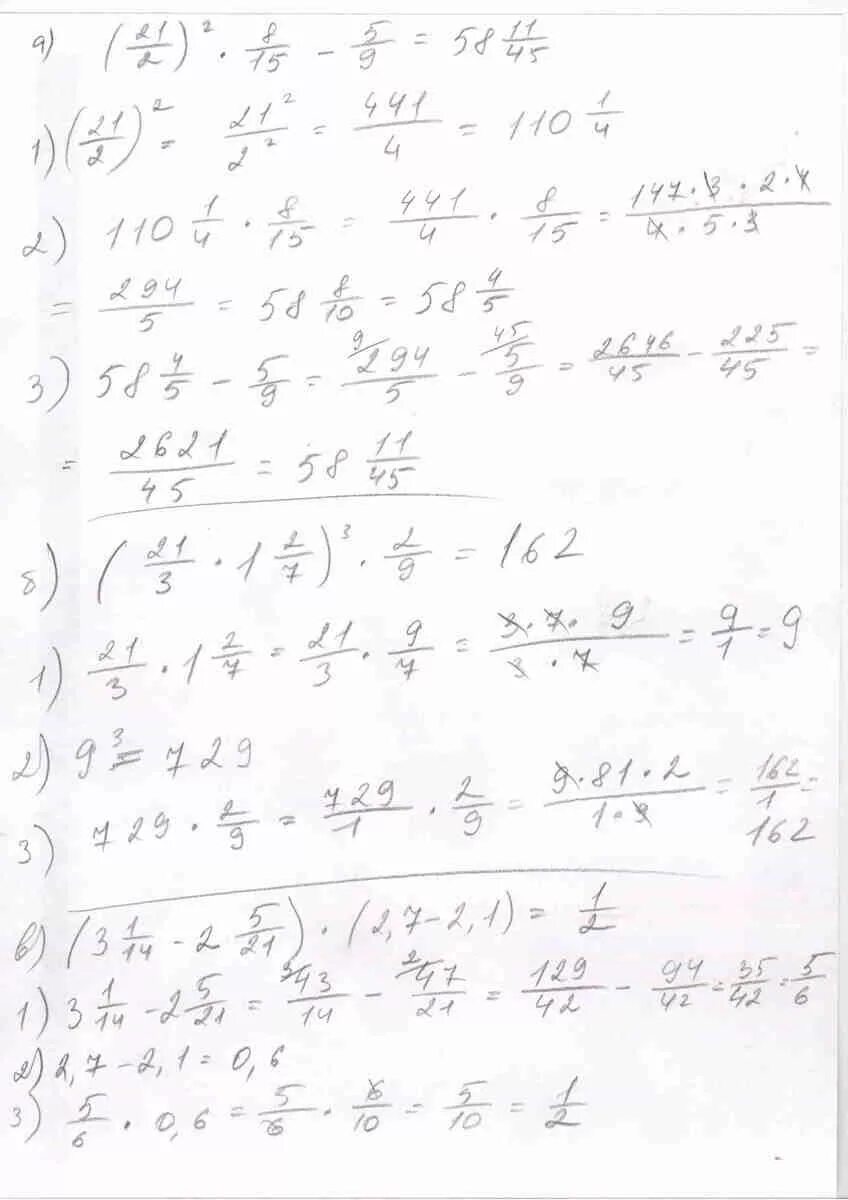 а) (21/2)² · 8/15 - 5/9 = 58 11/45
1) (21/2)² = 21²/2² = 441/4 = 110 1/4
2) 110 1/4 · 8/15 = 441/4 · 8/15 = 147·3·2·4/4·5·3
= 294/5 = 58 8/10 = 58 4/5
3) 58 4/5 - 5/9 = ⁹⁄294/5 - ⁴⁵⁄5/9 = 2646/45 - 225/45 =
= 2621/45 = 58 11/45
б) (21/3 · 1 2/7)³ · 2/9 = 162
1) 21/3 · 1 2/7 = 21/3 · 9/7 = 3·7·9/3·7 = 9/1 = 9
2) 9³ = 729
3) 729 · 2/9 = 729/1 · 2/9 = 9·81·2/1·9 = 162/1 =
162
в) (3 1/14 - 2 5/21) · (2,7-2,1) = 1/2
1) 3 1/14 - 2 5/21 = ³⁄43/14 - ²⁄47/21 = 129/42 - 94/42 = 35/42 = 5/6
2) 2,7-2,1 = 0,6
3) 5/6 · 0,6 = 5/6 · 6/10 = 5/10 = 1/2